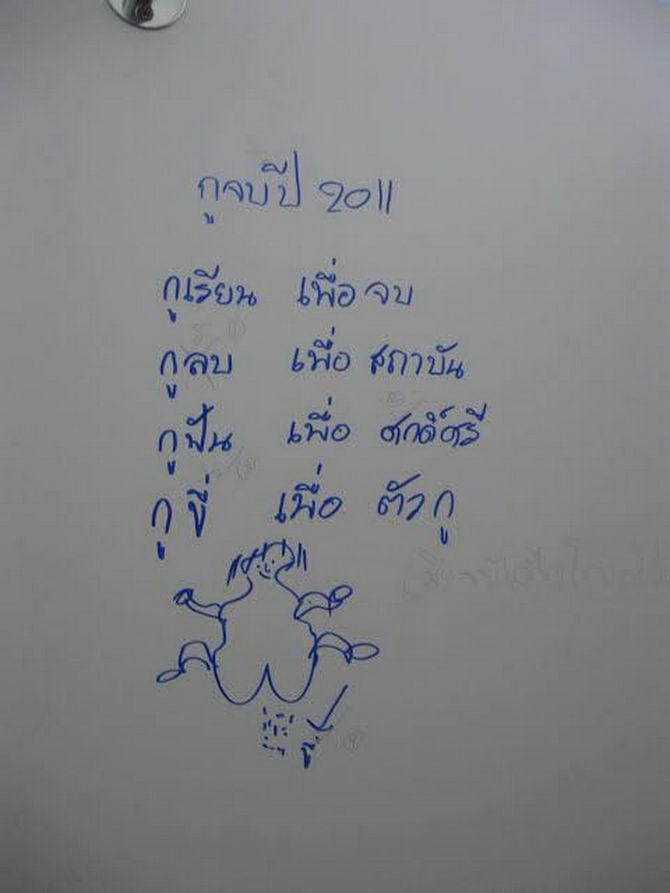 กูจบปี 2011
กูเรียน เพื่อ จบ
กูลบ เพื่อ สถาบัน
กูฟัน เพื่อ ศักดิ์ศรี
กู ขี่ เพื่อ ตัวกู